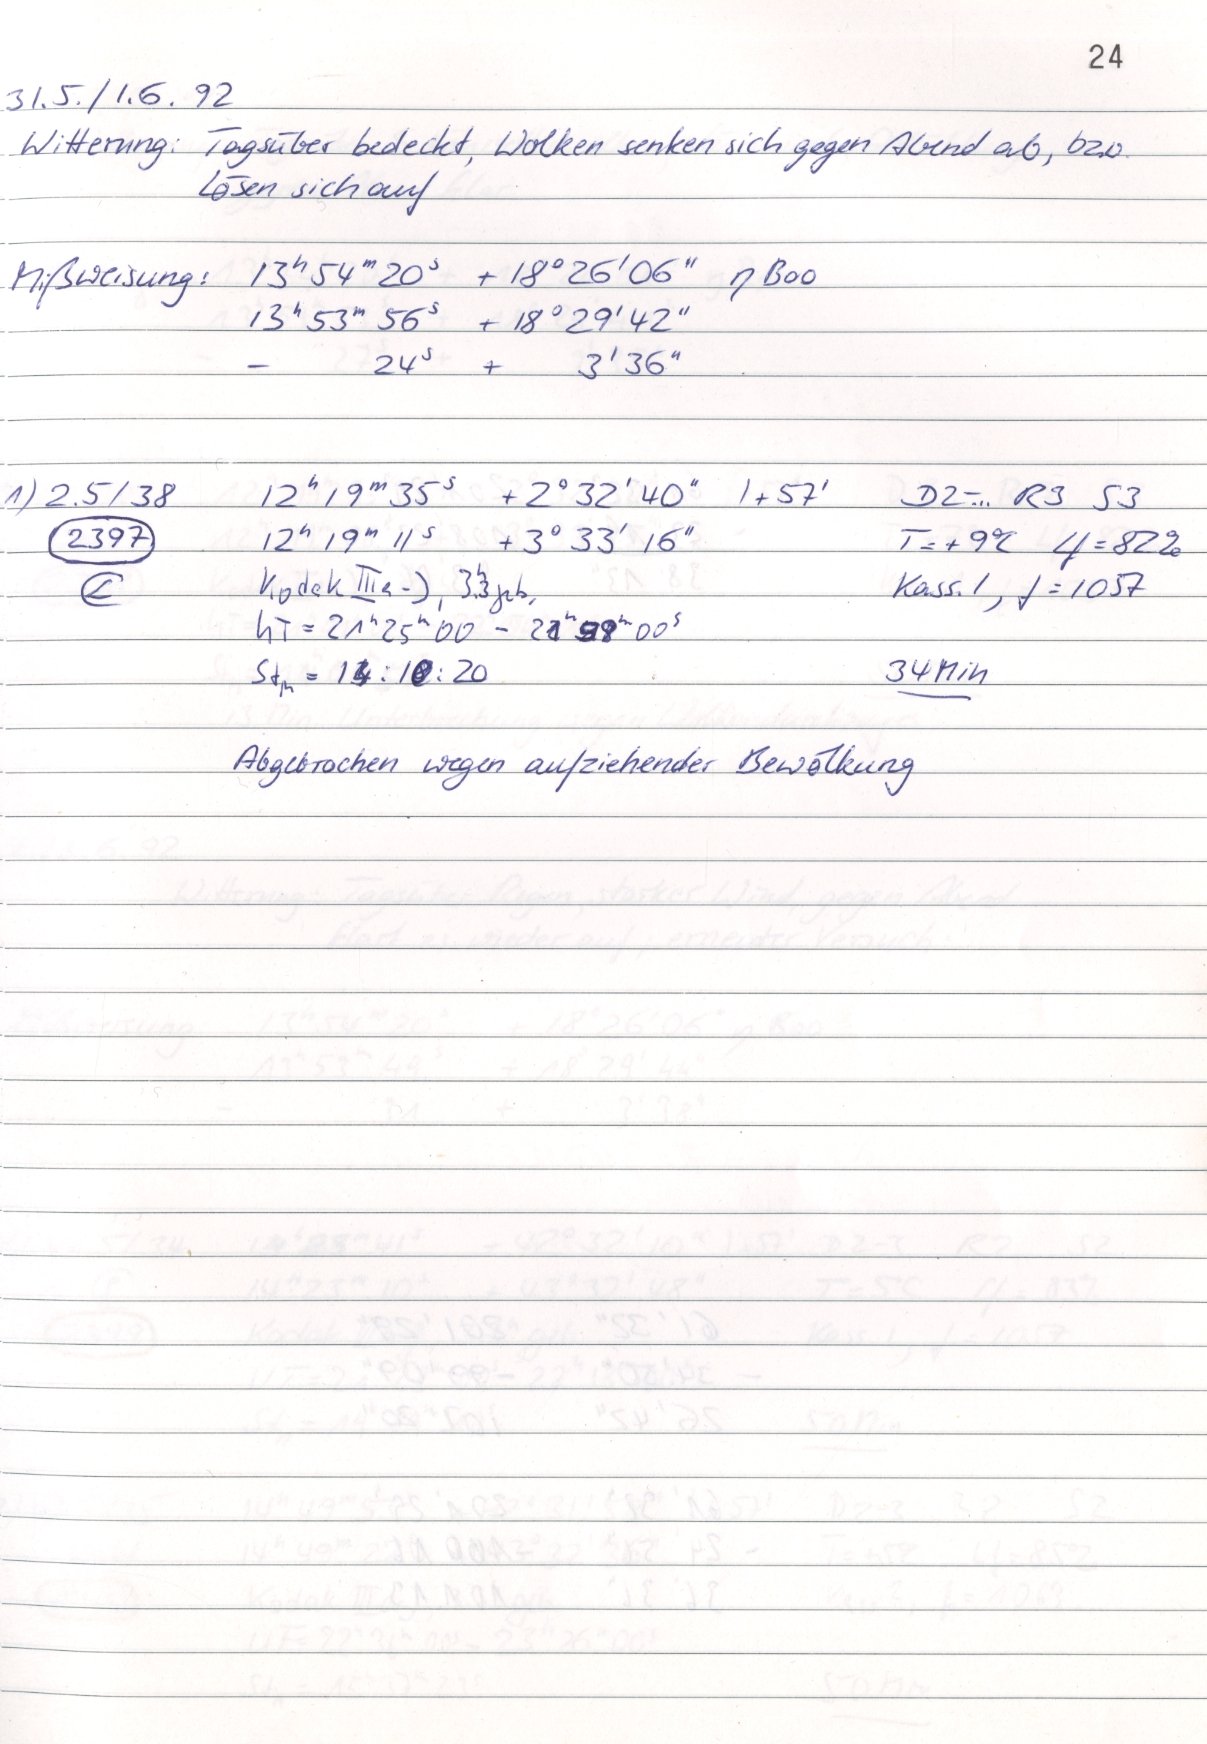 24
31.5./1.6.92
Witterung: Tagsüber bedeckt, Wolken senken sich gegen Abend ab, bzw.
lösen sich auf
Mißweisung: 13ʰ54ᵐ20ˢ +18°26'06" η Boo
13ʰ53ᵐ56ˢ +18°29'42"
- 24ˢ + 3'36"
1) 2.5/38 12ʰ19ᵐ35ˢ +2°32'40" 1+57' D2-.. R3 S3
2397 12ʰ19ᵐ11ˢ +3°33'16" T=+9°C φ=82%
Kodak IIIa-J, geb. Kass. 1, f=1057
UT=21ʰ25ᵐ00 - ᵐ00ˢ
Stₘ = :20 34 Min
Abgebrochen wegen aufziehender Bewölkung